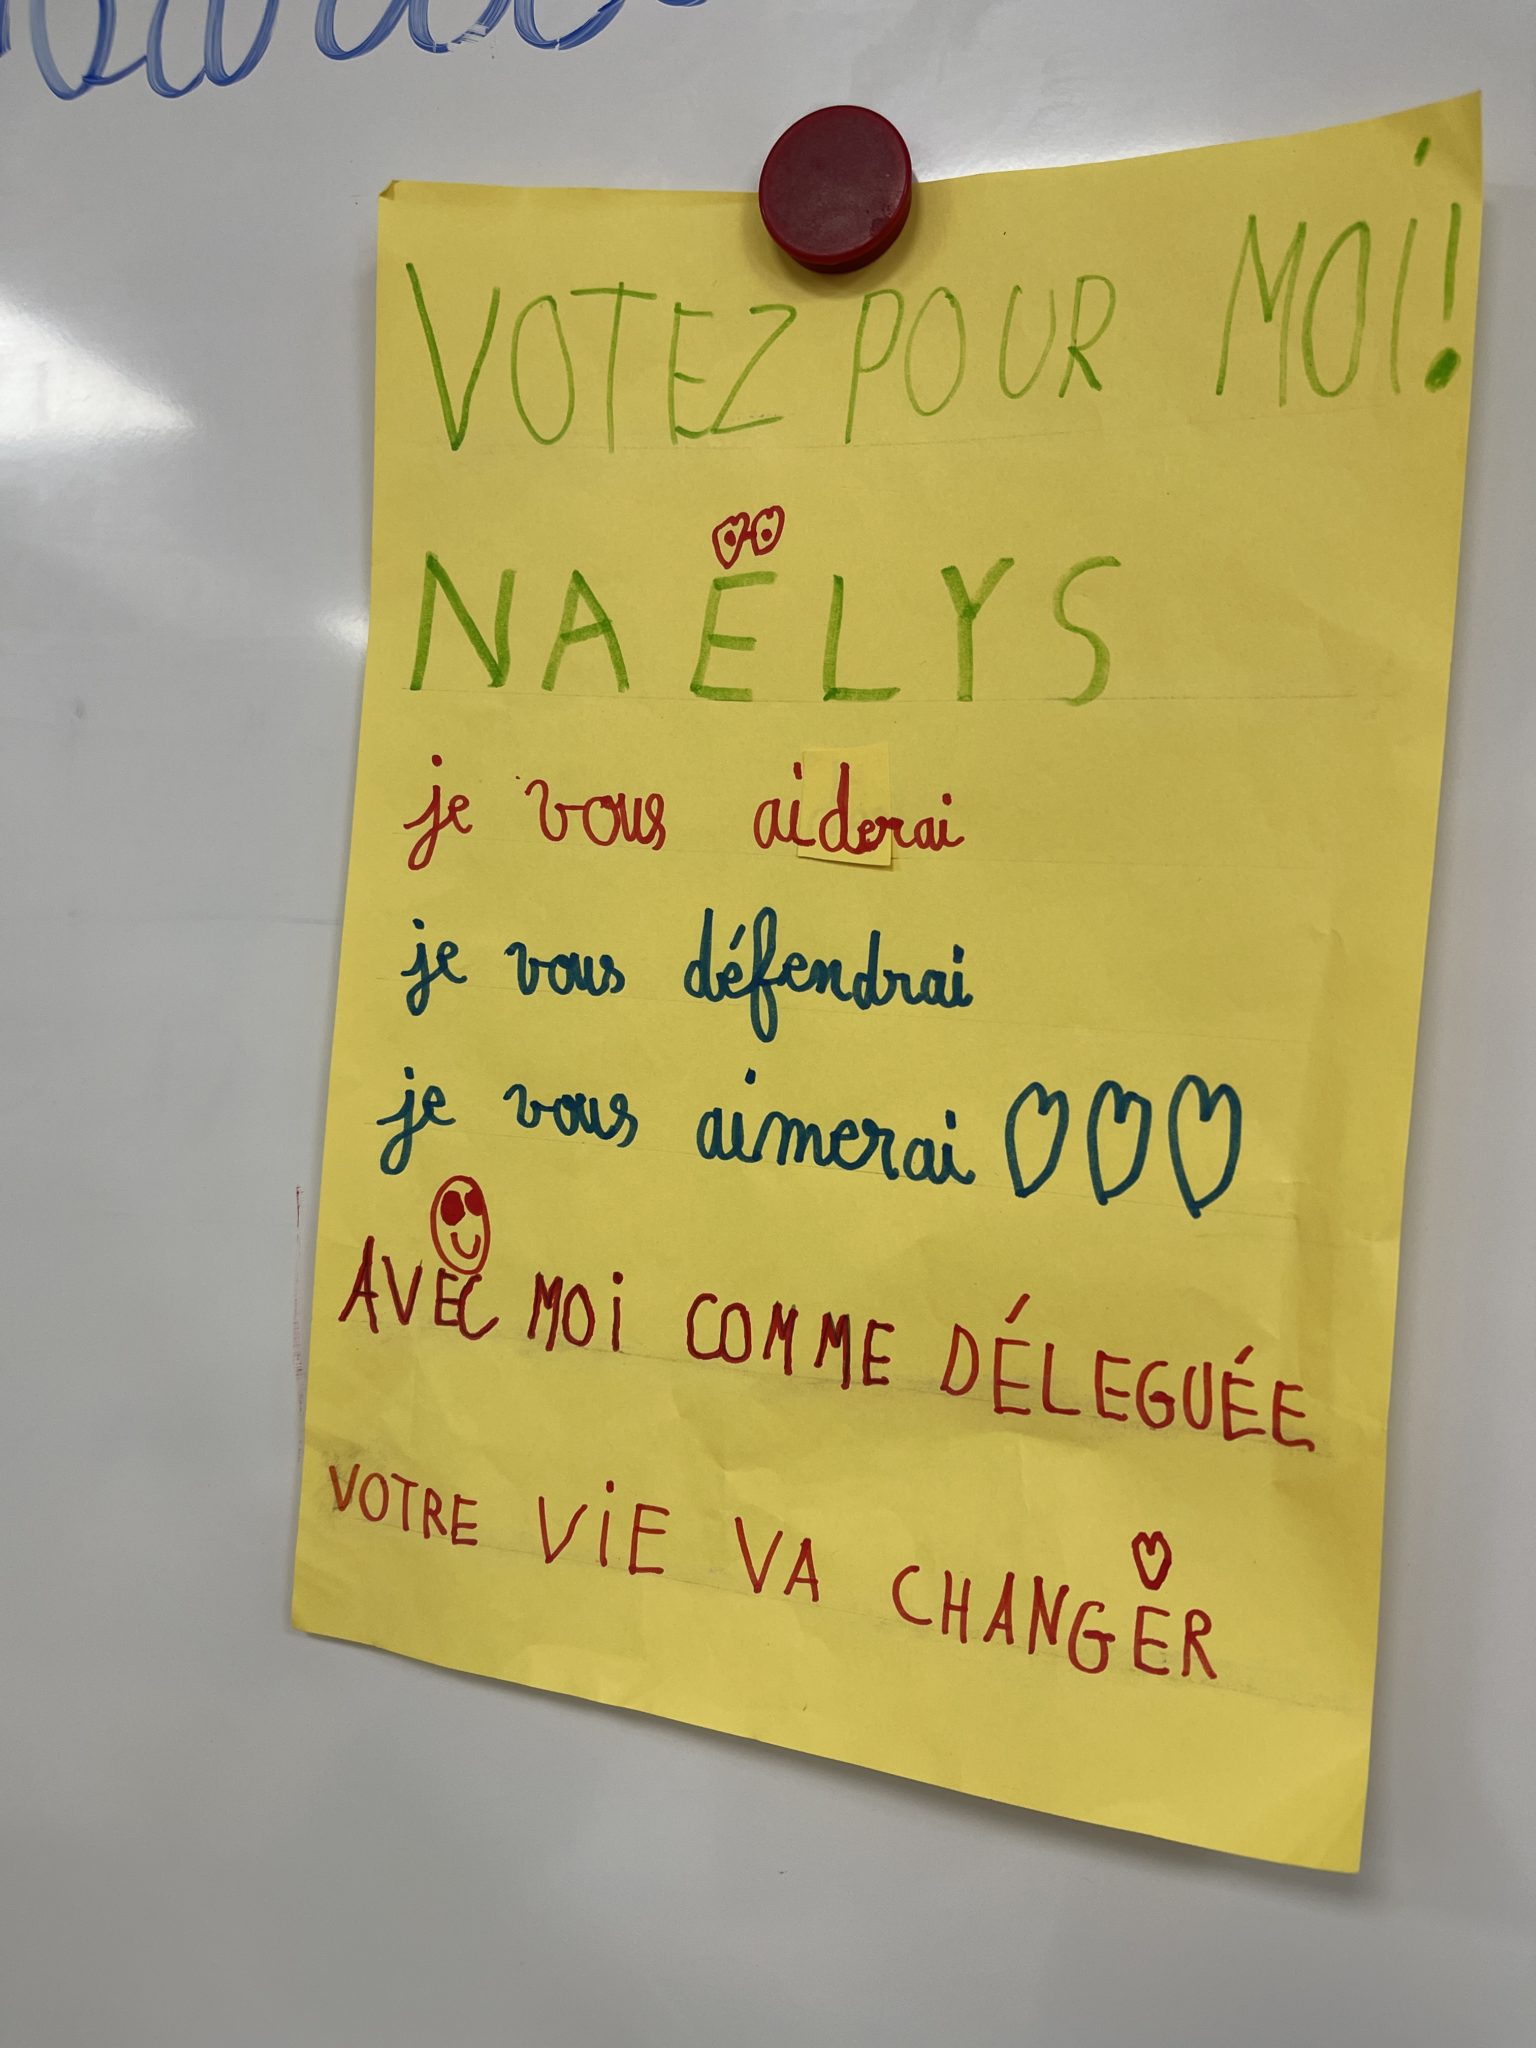 VOTEZ POUR MOi!
NAËLYS
je vous aiderai
je vous défendrai
je vous aimerai
AVEC MOi COMME DÉLEGUÉE
VOTRE ViE VA CHANGER